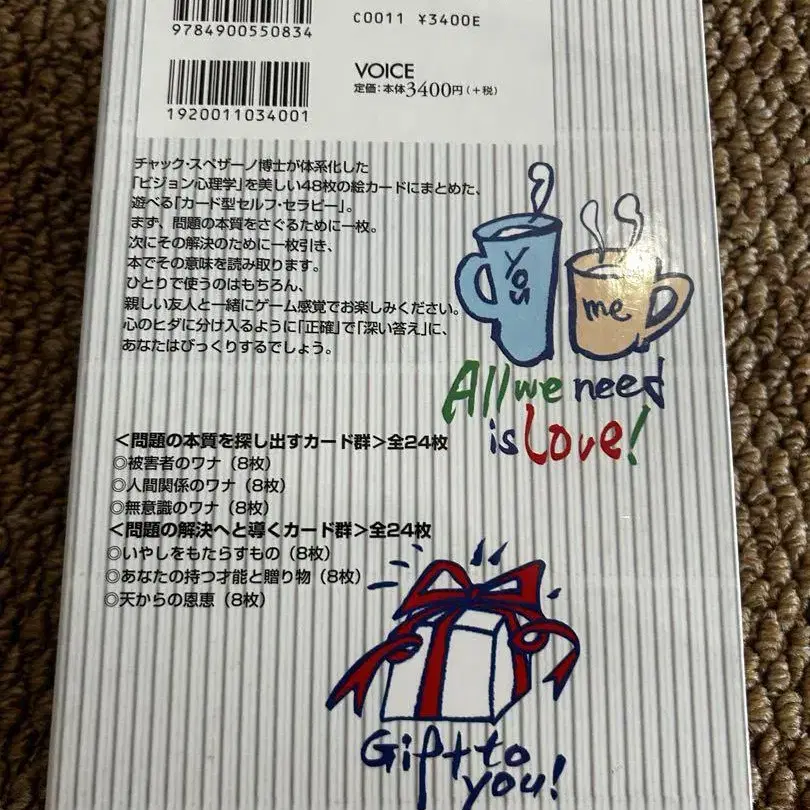 9784900550834
C0011 ¥3400E
1920011034001
VOICE
定価:本体3400円(+税)
チャック・スペザーノ博士が体系化した
「ビジョン心理学」を美しい48枚の絵カードにまとめた、
遊べる「カード型セルフ・セラピー」。
まず、問題の本質をさぐるために一枚。
次にその解決のために一枚引き、
本でその意味を読み取ります。
ひとりで使うのはもちろん、
親しい友人と一緒にゲーム感覚でお楽しみください。
心のヒダに分け入るように「正確」で「深い答え」に、
あなたはびっくりするでしょう。
You
me
All we need
is Love!
<問題の本質を探し出すカード群>全24枚
◎被害者のワナ(8枚)
◎人間関係のワナ(8枚)
◎無意識のワナ(8枚)
<問題の解決へと導くカード群>全24枚
◎いやしをもたらすもの(8枚)
◎あなたの持つ才能と贈り物(8枚)
◎天からの恩恵(8枚)
Gift to
you!